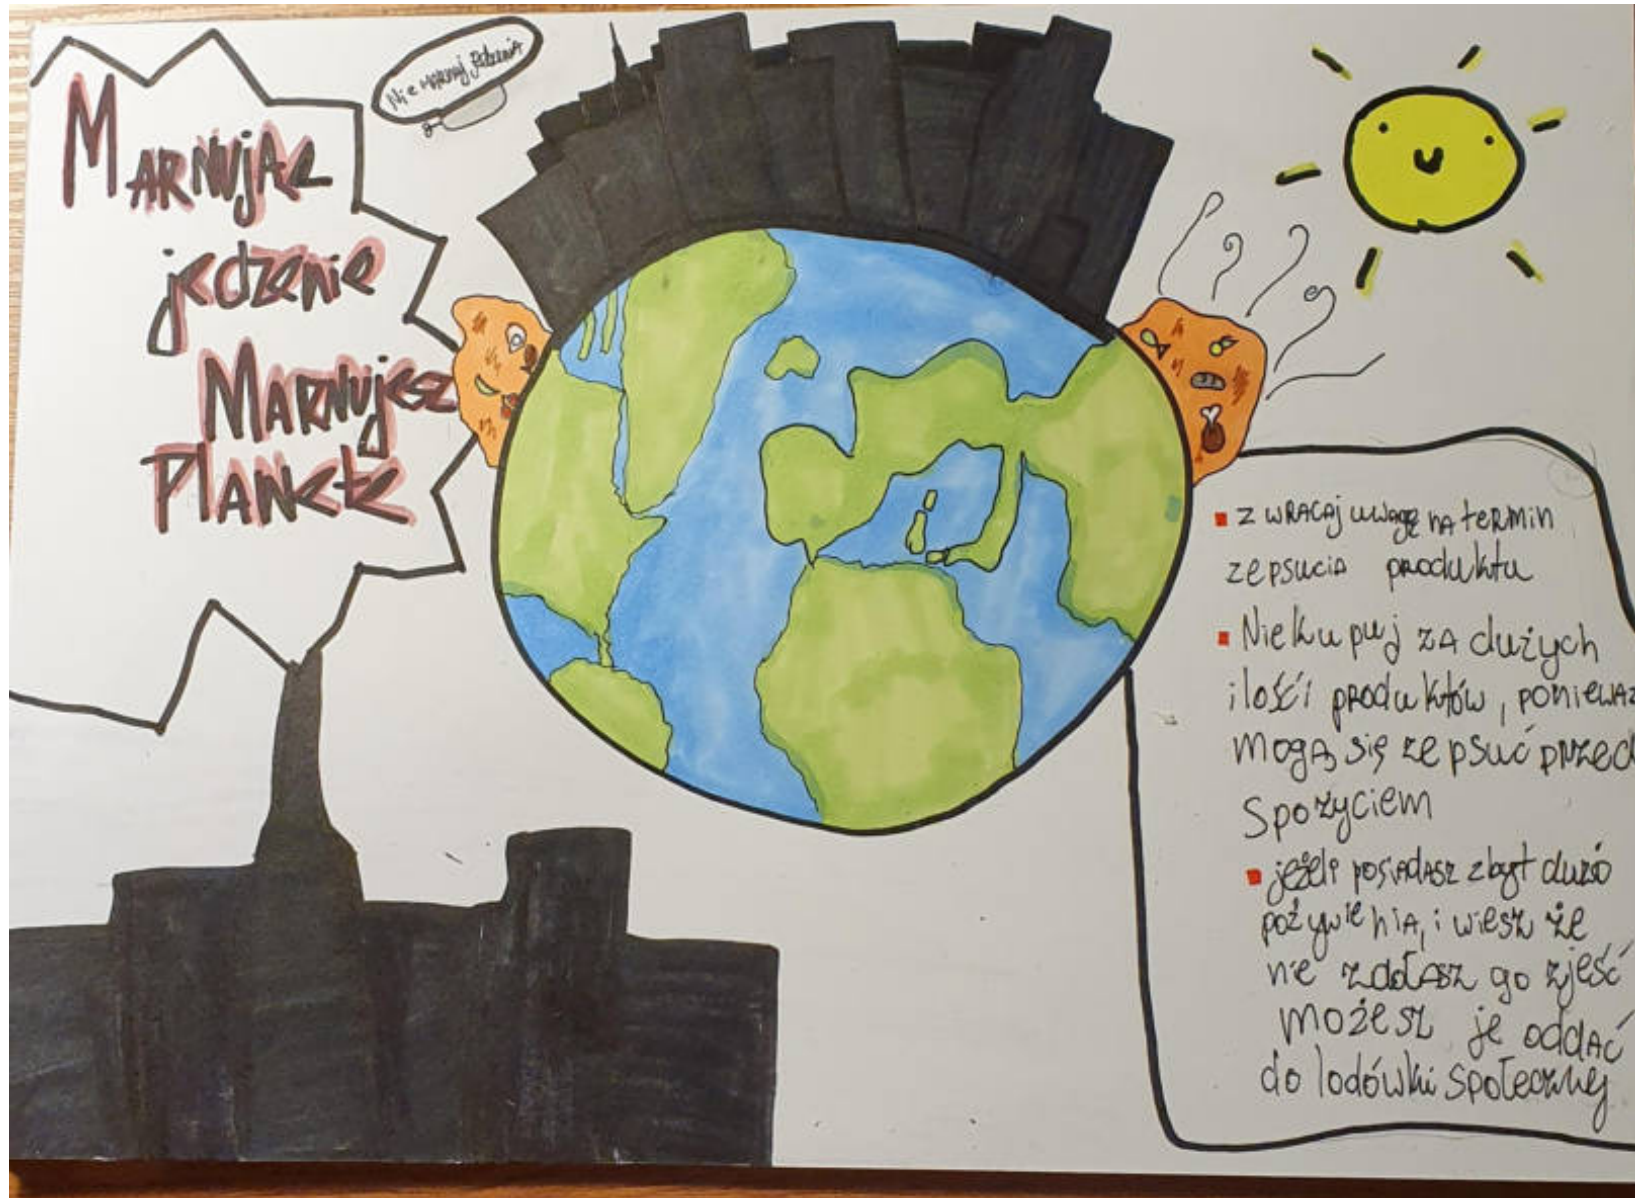 Marnując
jedzenie
Marnujesz
Planetę
Nie marnuj jedzenia
▪ zwracaj uwagę na termin
zepsucia produktu
▪ Nie kupuj za dużych
ilości produktów, ponieważ
mogą się zepsuć przed
spożyciem
▪ jeżeli posiadasz zbyt dużo
pożywienia, i wiesz że
nie zdołasz go zjeść
możesz je oddać
do lodówki społecznej